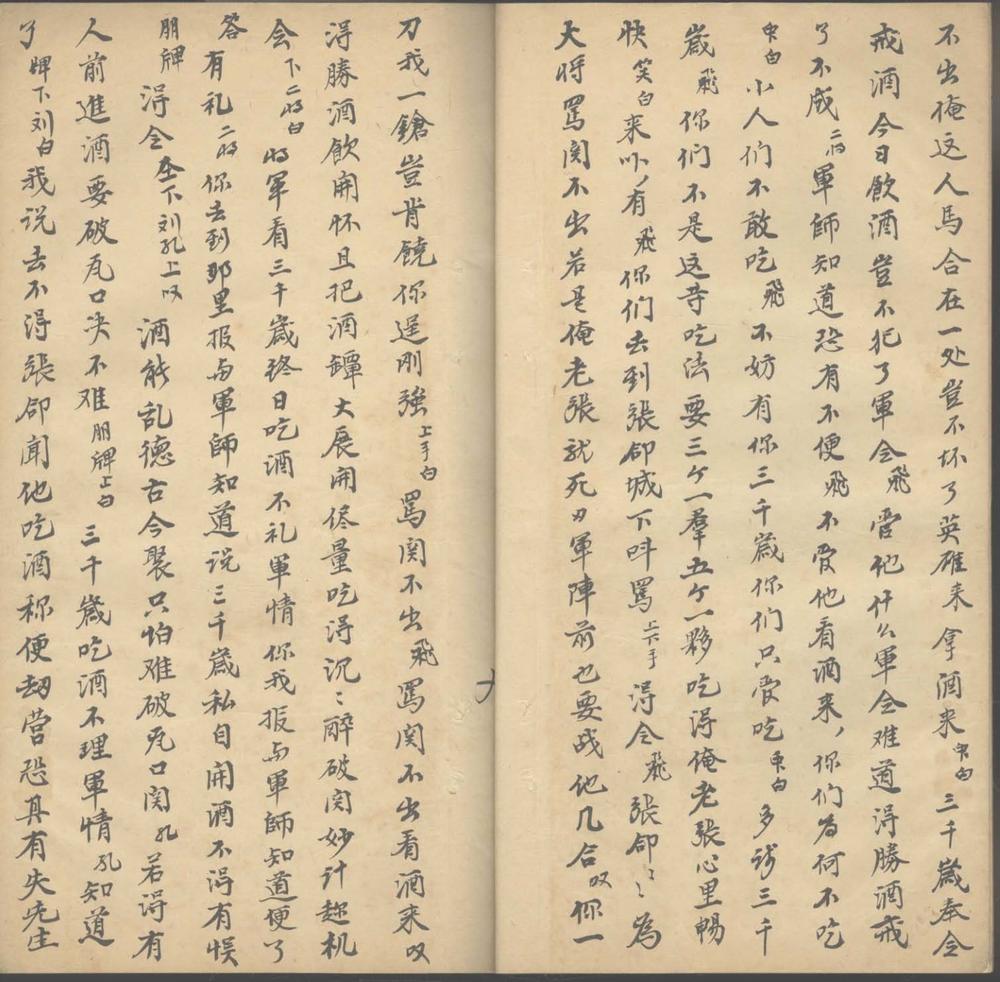 不出俺这人馬合在一处豈不坏了英雄来拿酒来衆白三千歲奉令
戒酒今日飲酒豈不犯了軍令飛管他什么軍令难道淂勝酒戒
了不成二将軍師知道恐有不便飛不管他看酒来你们為何不吃
衆白小人们不敢吃飛不妨有你三千歲你们只管吃衆白多謝三千
歲飛你们不是这等吃法要三个一羣五个一夥吃淂俺老張心里暢
快笑白来吓有飛你们去到張郃城下呌罵上下手淂令飛張郃〻〻為
大将罵関不出若是俺老張就死㓜軍陣前也要战他几合叹你一
刀我一鎗豈肯饒你逞刚強上手白罵関不出飛罵関不出看酒来叹
淂勝酒飲開怀且把酒罈大展開侭量吃淂沉〻醉破関妙计趂机
会下二将白将軍看三千歲終日吃酒不礼軍情你我报与軍師知道便了
答有礼二将你去到那里报与軍師知道说三千歲私自開酒不淂有悮
朋牌淂令在下刘孔上叹酒能乱德古今聚只怕难破瓦口関孔若淂有
人前進酒要破瓦口决不难朋牌上白三千歲吃酒不理軍情孔知道
了牌下刘白我说去不淂張郃聞他吃酒称便刼营恐其有失先生